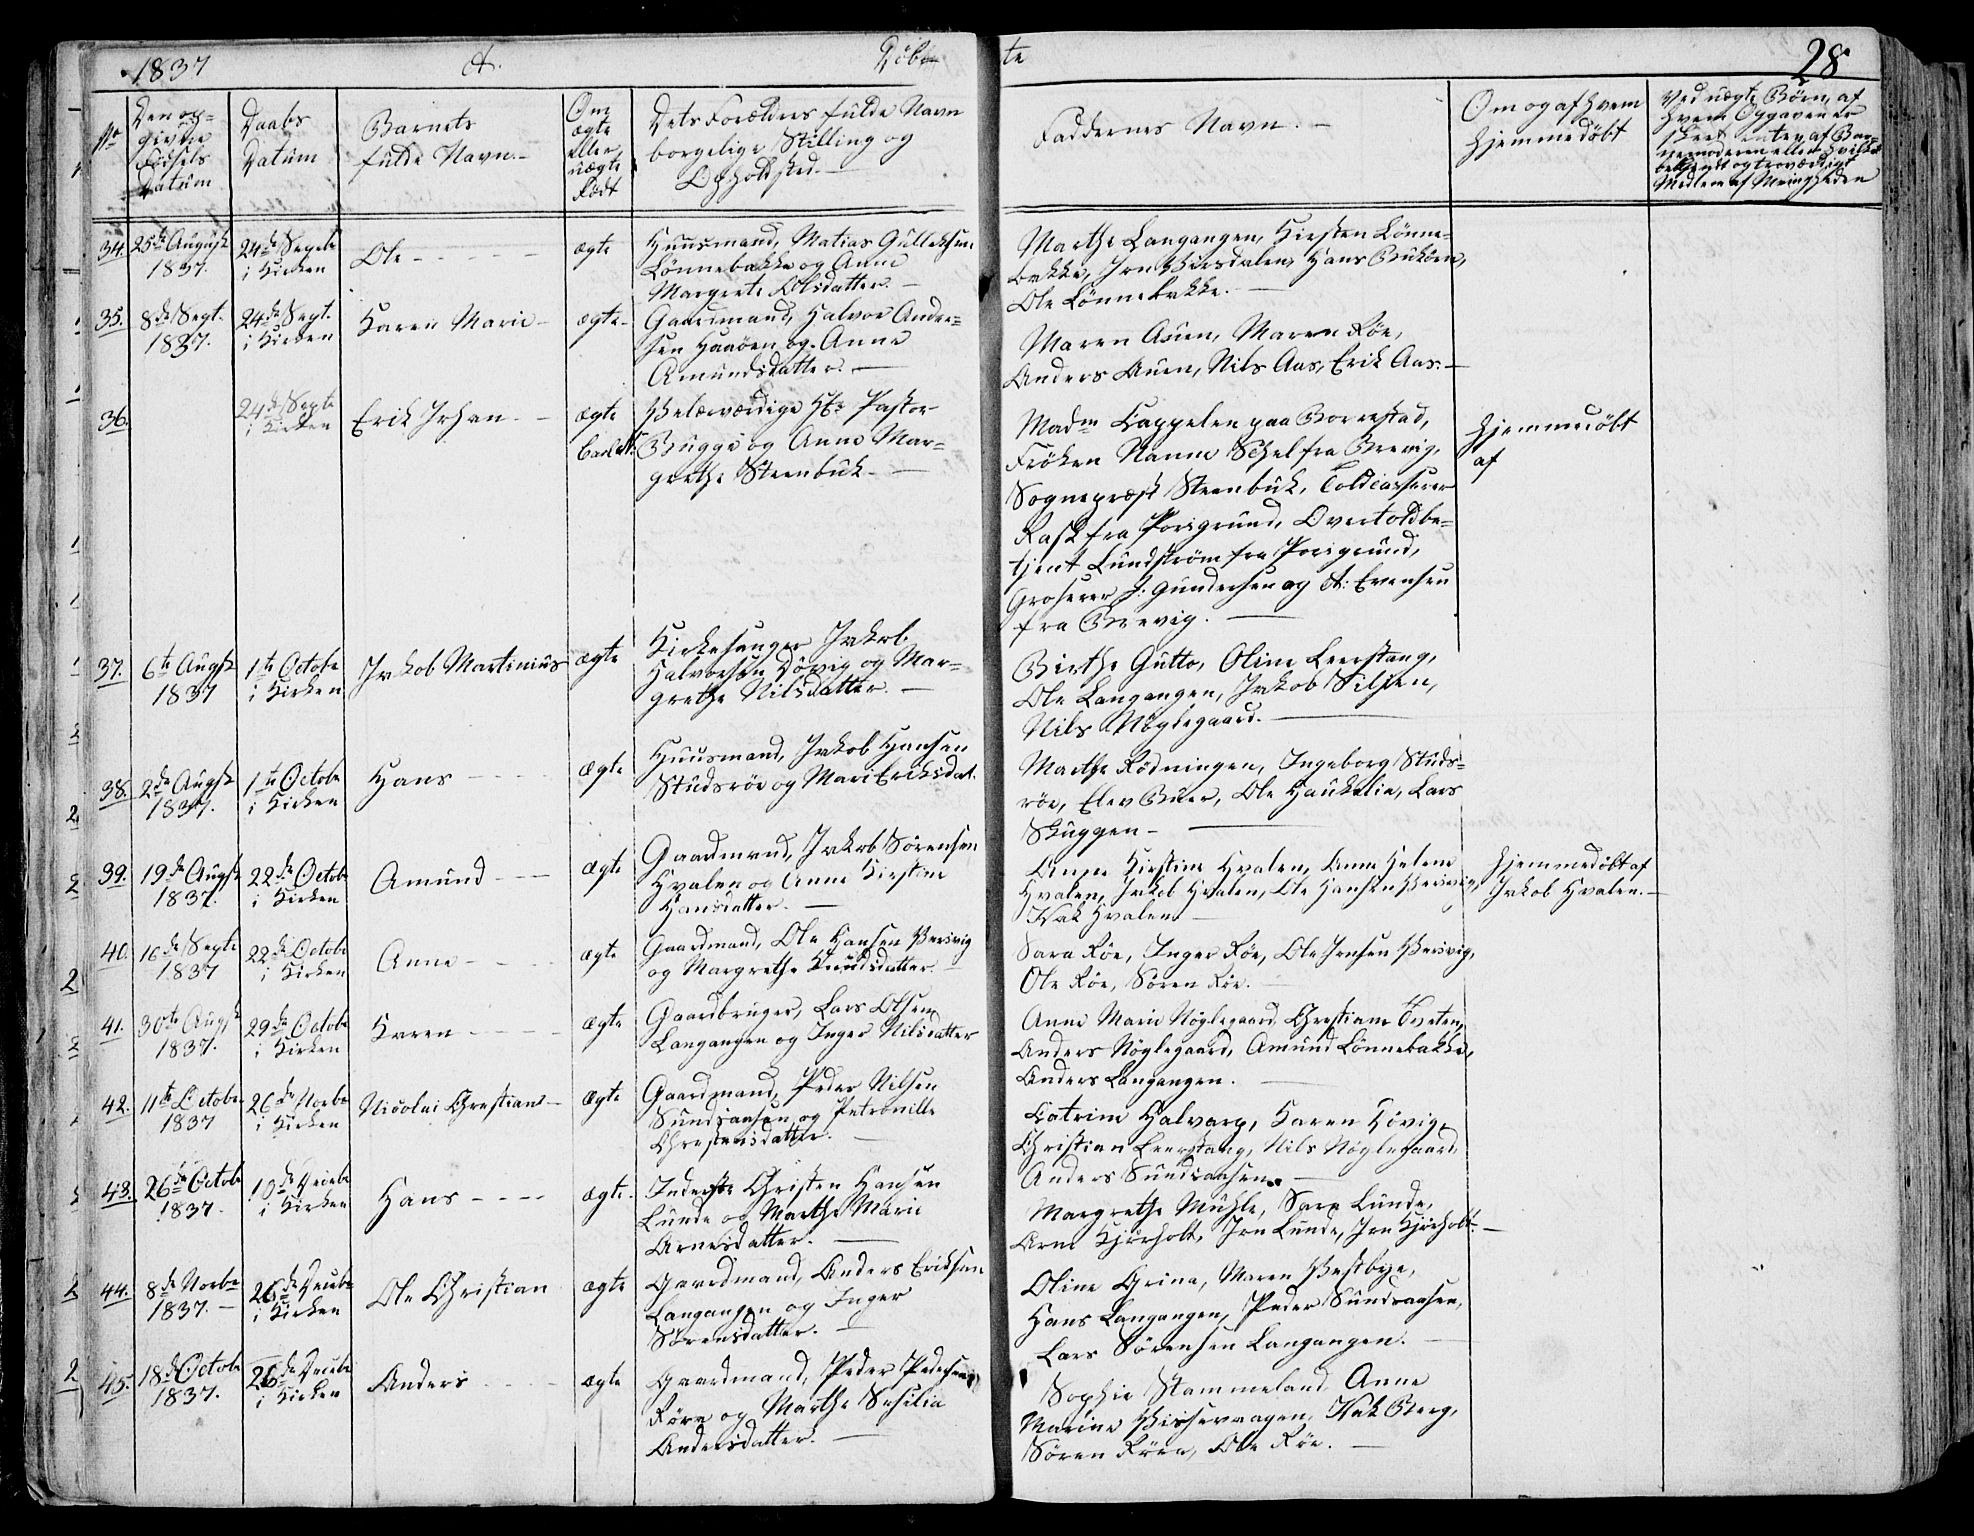 1837
A.
Døb-
te
28
No
Den op-
givne
Fødsels
Datum
Daabs
Datum
Barnets
fulde Navn.-
Om
ægte
eller
uægte
Født
Dets Forældres fulde Navn
borgelige Stilling og
Opholdsted.-
Faddernes Navn.-
Om og af hvem
hjemmedøbt
Ved uægte Børn, af
hvem Opgaven er
skeet
Medlem af Menigheden
34. 25de August
1837.
24de Septbr
i Kirken
Ole
ægte
Huusmand, Matias Gulleksen
Lønnebakke og Anne
Margrete Olsdatter.-
Marthe Langangen, Kirsten Lønne-
bakke, Hans
Ole Lønnebakke.-
35. 8de Sept.
1837.
24de Sept.
i Kirken
Karen Marie-
ægte-
Gaardmand, Halvor Ander-
sen Haaøen og Anne
Amundsdatter.-
Maren Auen, Maren Røe,
Anders Auen, Nils Aas, Erik Aas.-
36.
24de Septe
i Kirken
Erik Johan-
ægte
Velærværdige Hr Pastor
Bugge og Anne Mar-
grethe Steenbuk.-
Madm Cappelen paa Borrestad,
Frøken Nanne Schel fra Brevig,
Sognepræst Steenbuk, Toldcasserer
Rask fra Porsgrund, Overtoldbe-
tjent Lundstrøm fra Porsgrund,
Groserer J: Gundersen og A: Evensen
fra Brevig.
hjemmedøbt
af
37. 6te Augst
1837
1te Octobe
i Kirken
Jakob Martinius
ægte
Kirkesanger Jakob
Halvorsen Døvig og Mar-
grethe Nilsdatter.-
Birthe Gutto, Oline Leerstang,
Ole Langangen, Jakob Siljen,
Nils Nøglegaard.
38. 2de Augst
1837.
1te Octobe
i Kirken
Hans
ægte
Huusmand, Jakob Hansen
Studsrøe og Mari Eriksdat.
Marthe Rødningen, Ingeborg Studs-
røe, Elev Buer, Ole Haukelie, Lars
Skuggen-
39. 19de Augst
1837.
22de Octob
i Kirken
Amund
ægte
Gaardmand, Jakob Sørensen
Hvalen og Anne Kirstine
Hansdatter.-
Anne Kirstine Hvalen, Anne Helene
Hvalen, Jakob Hvalen, Ole Hansen Versvig,
Isak Hvalen
hjemmedøbt af
Jakob Hvalen.-
40. 16de Septe
1837
22de Octobe
i Kirken
Anne
ægte
Gaardmand, Ole Hansen Versvig
og Margrethe Knudsdatter.
Sara Røe, Inger Røe, Ole Jensen Versvig,
Ole Røe, Søren Røe.
41. 30te Augst
1837.
29de Octobe
i Kirken
Karen
ægte
Gaardbruger, Lars Olsen
Langangen og Inger Nilsdatter
Anne Marie Nøglegaard, Christiane Tveten,
Anders Nøglegaard, Amund Lønnebakke,
Anders Langangen.
42. 11te Octobe
1837
26de Novbe
i Kirken
Nicolai Christian-
ægte
Gaardmand, Peder Nilsen
Sundsaasen og Petronille
Christensdatter.
Catrine Halvarp, Karen Døvig,
Christian Leerstang, Nils Nøglegaard,
Anders Sundsaasen.-
43. 26de Octobe
1837.
10de Decbe
i Kirken
Hans
ægte.
Inderste Christen Hansen
Lunde og Marthe Marie
Arnesdatter.
Margrethe Mühle, Sara Lunde,
Arne Kjørholt, Jon Lunde, Jon Kjørholt.-
44. 8de Novbe
1837.-
26de Decbe
i Kirken
Ole Christian
ægte
Gaardmand, Anders Eriksen
Langangen og Inger
Sørensdatter.-
Oline Grina, Maren Vestbye,
Hans Langangen, Peder Sundsaasen,
Lars Sørensen Langangen.
45. 18de Octobe
1837.
26de Decbe
i Kirken
Anders
ægte
Gaardmand, Peder Pedersen
Røra og Marthe Sesilia
Andersdatter.-
Sophie Stammeland, Anne
Marine Vissevaagen, Isak Berg,
Søren Røra, Ole Røe.-